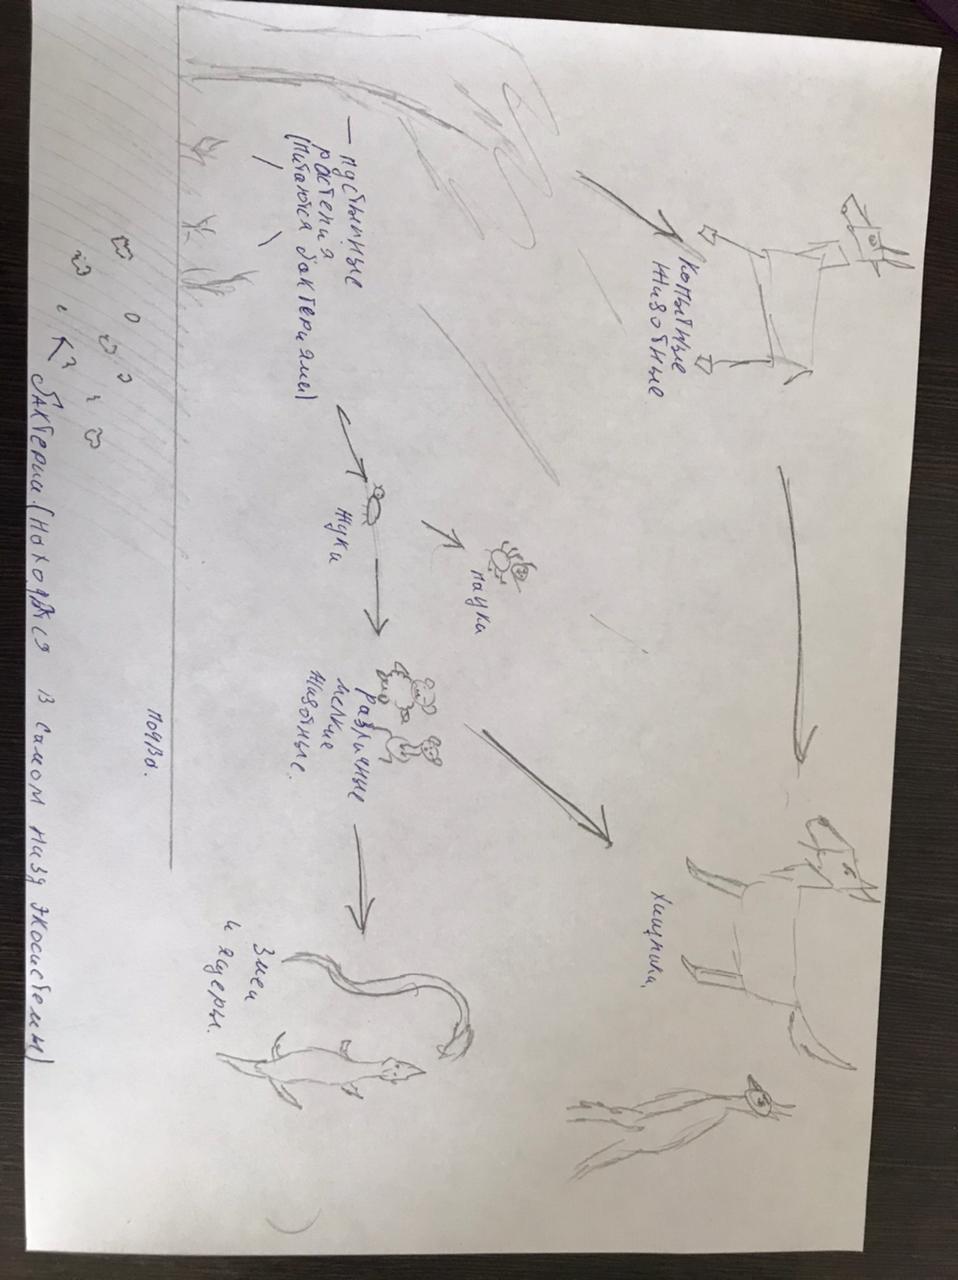 Копытные
животные
— пустынные
растения
(питаются бактериями)
пауки
жуки
различные
мелкие
животные.
хищники
Змеи
и ящеры.
бактерии (находятся в самом низу экосистемы)